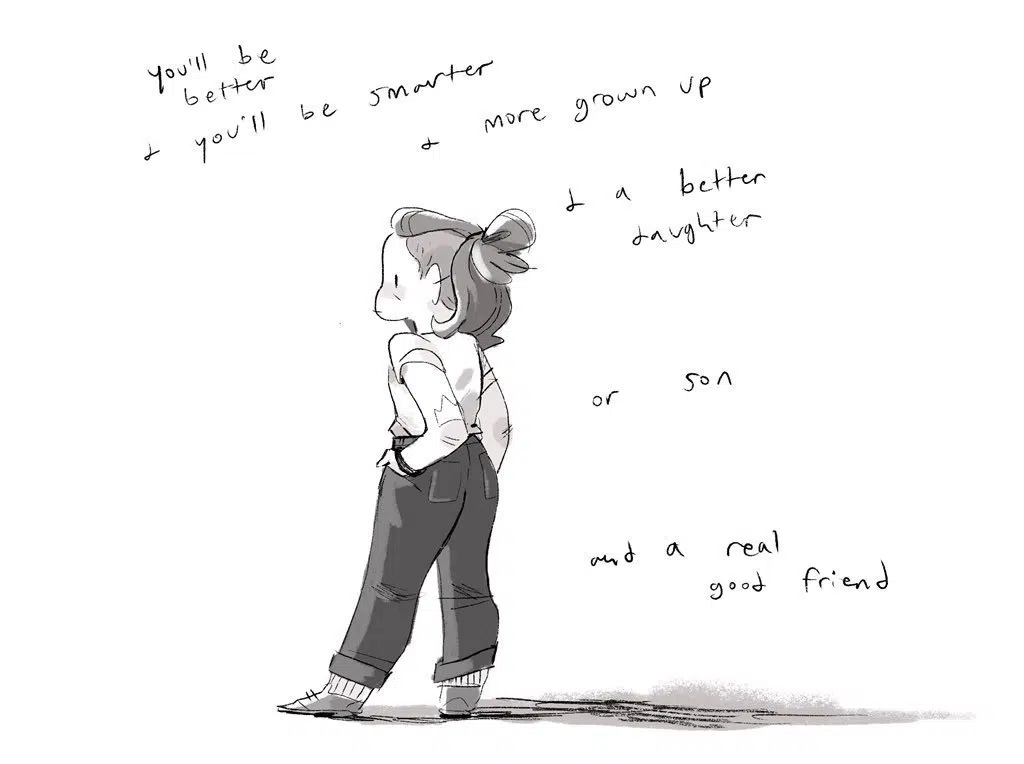 you'll be
better
& you'll be smarter
& more grown up
& a better
daughter
or son
and a real
good friend